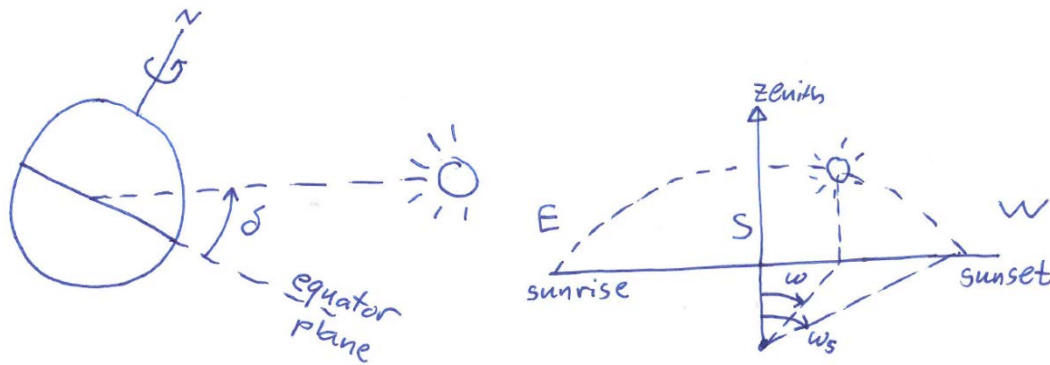 N
δ
equator
plane
zenith
E
S
W
sunrise
ω
sunset
ωs